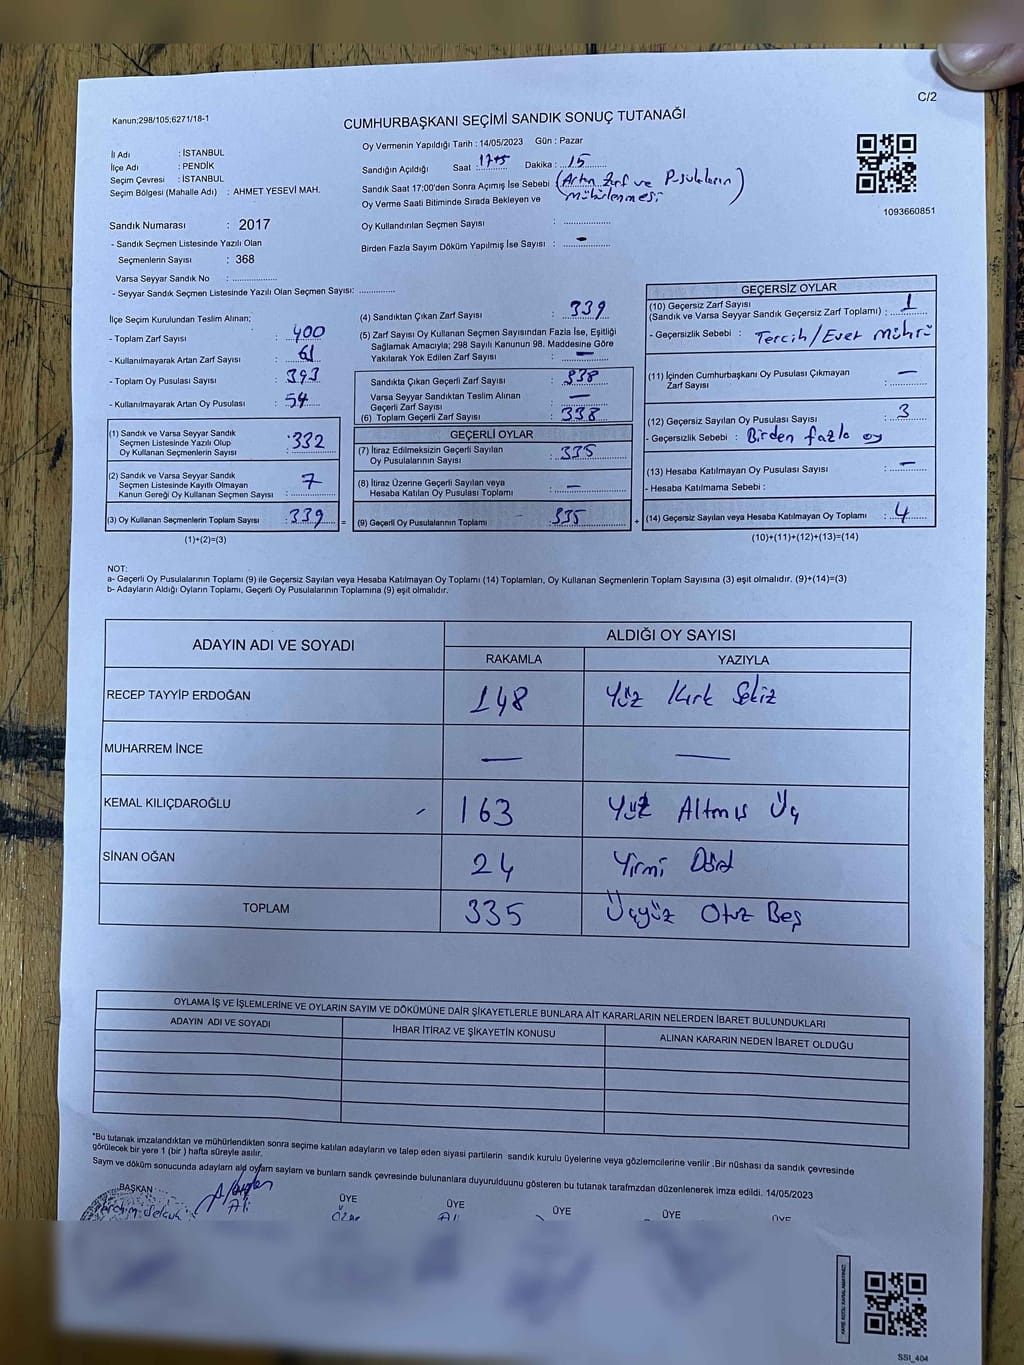 C/2
Kanun;298/105;6271/18-1
CUMHURBAŞKANI SEÇİMİ SANDIK SONUÇ TUTANAĞI
İl Adı : İSTANBUL
İlçe Adı : PENDİK
Seçim Çevresi : İSTANBUL
Seçim Bölgesi (Mahalle Adı) : AHMET YESEVİ MAH.
Oy Vermenin Yapıldığı Tarih : 14/05/2023 Gün : Pazar
Sandığın Açıldığı Saat Dakika : 15
Sandık Saat 17:00'den Sonra Açımış İse Sebebi (Artan Zarf ve Pusulaların
Oy Verme Saati Bitiminde Sırada Bekleyen ve mühürlenmesi)
Oy Kullandırılan Seçmen Sayısı : ..............
Birden Fazla Sayım Döküm Yapılmış İse Sayısı : -
1093660851
Sandık Numarası : 2017
- Sandık Seçmen Listesinde Yazılı Olan
Seçmenlerin Sayısı : 368
Varsa Seyyar Sandık No : ..............
- Seyyar Sandık Seçmen Listesinde Yazılı Olan Seçmen Sayısı: ............
İlçe Seçim Kurulundan Teslim Alınan;
- Toplam Zarf Sayısı : 400
- Kullanılmayarak Artan Zarf Sayısı : 61
- Toplam Oy Pusulası Sayısı : 393
- Kullanılmayarak Artan Oy Pusulası : 54
(1) Sandık ve Varsa Seyyar Sandık
Seçmen Listesinde Yazılı Olup : 332
Oy Kullanan Seçmenlerin Sayısı
(2) Sandık ve Varsa Seyyar Sandık
Seçmen Listesinde Kayıtlı Olmayan 7
Kanun Gereği Oy Kullanan Seçmen Sayısı :
(3) Oy Kullanan Seçmenlerin Toplam Sayısı : 339 =
(1)+(2)=(3)
(4) Sandıktan Çıkan Zarf Sayısı : 339
(5) Zarf Sayısı Oy Kullanan Seçmen Sayısından Fazla İse, Eşitliği
Sağlamak Amacıyla; 298 Sayılı Kanunun 98. Maddesine Göre
Yakılarak Yok Edilen Zarf Sayısı : —
Sandıkta Çıkan Geçerli Zarf Sayısı : 338
Varsa Seyyar Sandıktan Teslim Alınan
Geçerli Zarf Sayısı : —
(6) Toplam Geçerli Zarf Sayısı : 338
GEÇERLİ OYLAR
(7) İtiraz Edilmeksizin Geçerli Sayılan
Oy Pusulalarının Sayısı : 335
(8) İtiraz Üzerine Geçerli Sayılan veya
Hesaba Katılan Oy Pusulası Toplamı : —
(9) Geçerli Oy Pusulalarının Toplamı : 335 +
GEÇERSİZ OYLAR
(10) Geçersiz Zarf Sayısı
(Sandık ve Varsa Seyyar Sandık Geçersiz Zarf Toplamı) : 1
- Geçersizlik Sebebi : Tercih/Evet mührü
(11) İçinden Cumhurbaşkanı Oy Pusulası Çıkmayan
Zarf Sayısı : —
(12) Geçersiz Sayılan Oy Pusulası Sayısı : 3
- Geçersizlik Sebebi : Birden fazla oy
(13) Hesaba Katılmayan Oy Pusulası Sayısı : —
- Hesaba Katılmama Sebebi :
(14) Geçersiz Sayılan veya Hesaba Katılmayan Oy Toplamı : 4
(10)+(11)+(12)+(13)=(14)
NOT:
a- Geçerli Oy Pusulalarının Toplamı (9) ile Geçersiz Sayılan veya Hesaba Katılmayan Oy Toplamı (14) Toplamları, Oy Kullanan Seçmenlerin Toplam Sayısına (3) eşit olmalıdır. (9)+(14)=(3)
b- Adayların Aldığı Oyların Toplamı, Geçerli Oy Pusulalarının Toplamına (9) eşit olmalıdır.
ADAYIN ADI VE SOYADI ALDIĞI OY SAYISI
RAKAMLA YAZIYLA
RECEP TAYYİP ERDOĞAN 148 Yüz Kırk Sekiz
MUHARREM İNCE — —
KEMAL KILIÇDAROĞLU 163 Yüz Altmış Üç
SİNAN OĞAN 24 Yirmi Dört
TOPLAM 335 Üçyüz Otuz Beş
OYLAMA İŞ VE İŞLEMLERİNE VE OYLARIN SAYIM VE DÖKÜMÜNE DAİR ŞİKAYETLERLE BUNLARA AİT KARARLARIN NELERDEN İBARET BULUNDUKLARI
ADAYIN ADI VE SOYADI İHBAR İTİRAZ VE ŞİKAYETİN KONUSU ALINAN KARARIN NEDEN İBARET OLDUĞU
*Bu tutanak imzalandıktan ve mühürlendikten sonra seçime katılan adayların ve talep eden siyasi partilerin sandık kurulu üyelerine veya gözlemcilerine verilir .Bir nüshası da sandık çevresinde
görülecek bir yere 1 (bir ) hafta süreyle asılır.
Sayım ve döküm sonucunda adayların ald oyların sayılam ve bunların sandk çevresinde bulunanlara duyurulduunu gösteren bu tutanak tarafımzdan düzenlenerek imza edildi. 14/05/2023
BAŞKAN ÜYE ÜYE ÜYE ÜYE ÜYE
Ali Ali
SSI_404